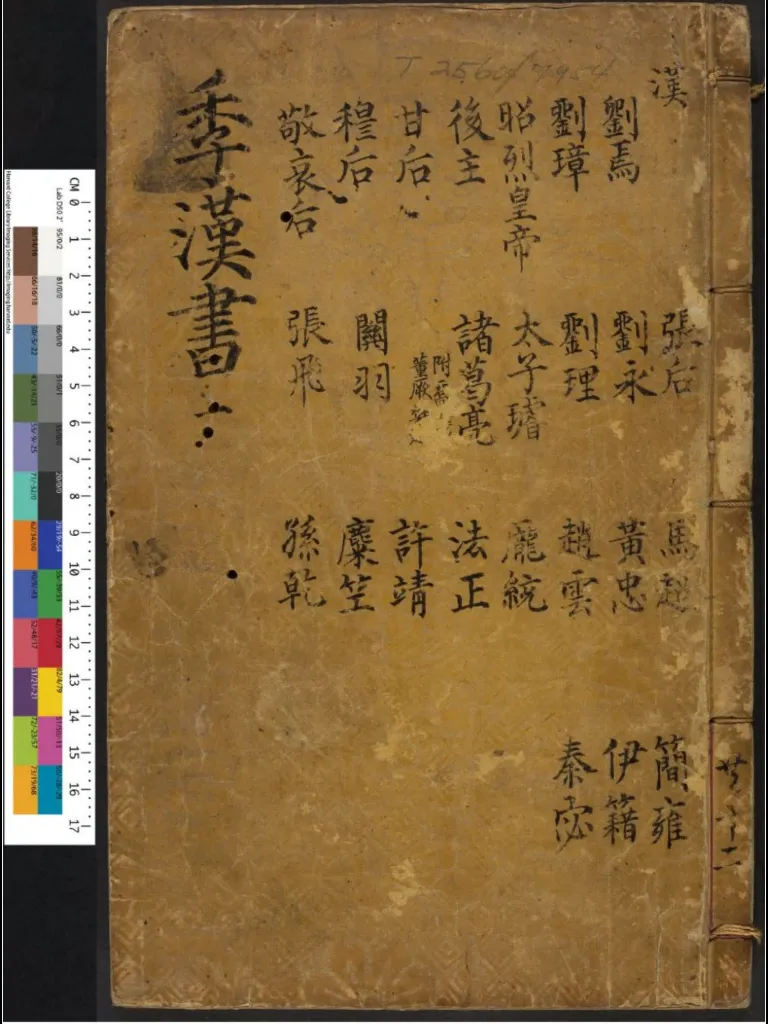 T 2560/7954
漢
劉焉
劉璋
昭烈皇帝
後主
甘后
穆后
敬哀后
張后
劉永
劉理
太子璿
諸葛亮
附喬
董厥
關羽
張飛
馬超
黃忠
趙雲
龐統
法正
許靖
麋竺
孫乾
簡雍
伊籍
秦宓
季漢書
二
CM 0 1 2 3 4 5 6 7 8 9 10 11 12 13 14 15 16 17
Harvard College Library Imaging Services